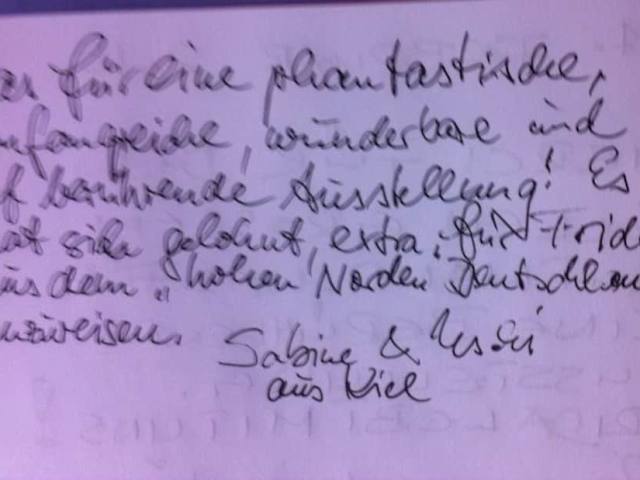 für eine phantastische,
umfangreiche, wunderbare und
berührende Ausstellung! Es
hat sich gelohnt, extra für Frida
aus dem „hohen Norden Deutschlan
anzureisen.
Sabine &
aus Kiel